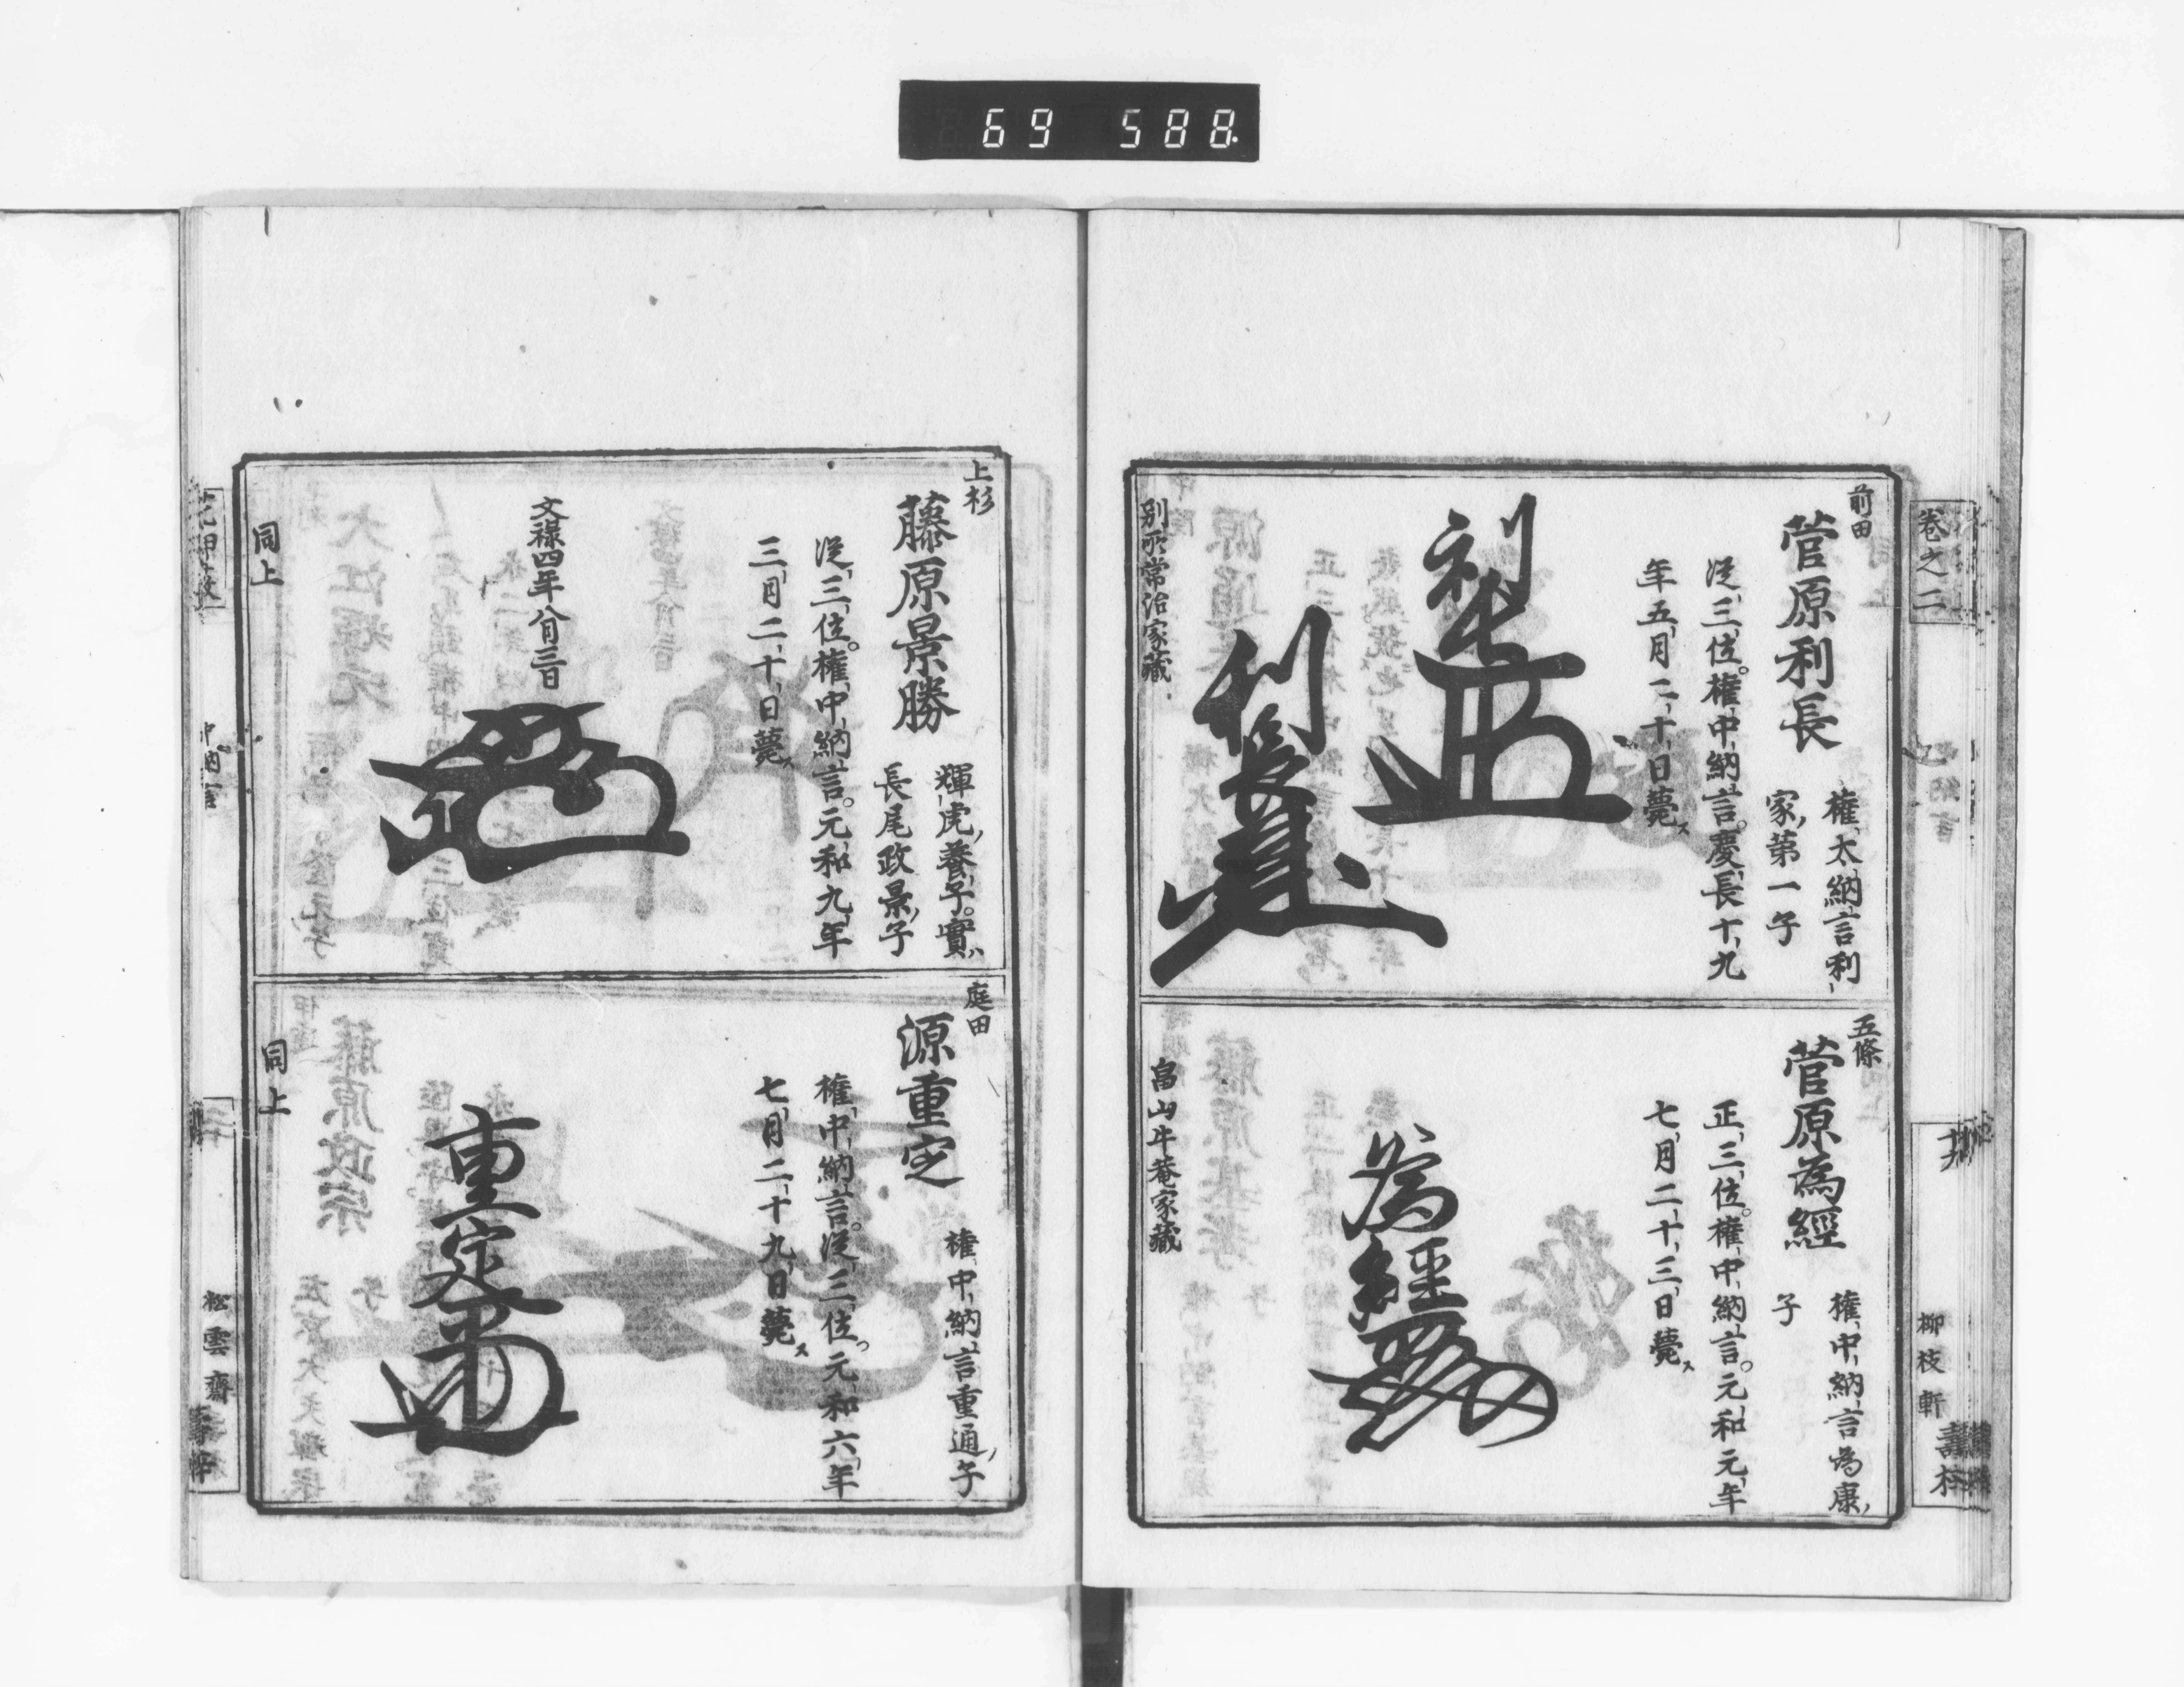 69 588.
卷之二
柳枝軒
前田
菅原利長
權大納言利
家第一子
從三位。權中納言。慶長十九
年五月二十日薨ス
利長
利長
別所常治家藏
五條
菅原為經
權中納言為康
子
正三位。權中納言。元和元年
七月二十三日薨ス
為經
畠山牛菴家藏
上杉
藤原景勝
輝虎養子。實ハ
長尾政景ノ子
從三位。權中納言。元和九年
三月二十日薨ス
文祿四年八月三日
同上
庭田
源重定
權中納言重通ノ子
權中納言。從三位。元和六年
七月二十九日薨ス
重定
同上
中納言
松雲齋